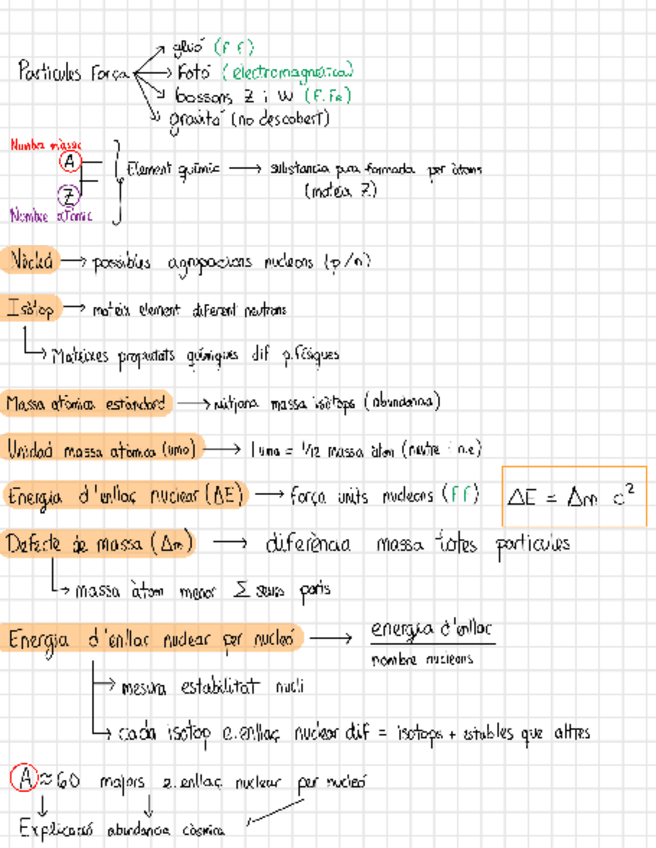 gluó (F.F)
Partícules Força
Fotó (electromagnètica)
bossons Z i W (F.Fe)
gravitó (no descobert)
Nombre màssic
A
Element químic → substancia pura formada per àtoms
(mateix Z)
Z
Nombre atòmic
Núclid → possibles agrupacions nucleons (p/n)
Isòtop → mateix element diferent neutrons
Mateixes propietats químiques dif p.físiques
Massa atòmica estàndard → mitjana massa isòtops (abundancia)
Unidad massa atòmica (uma) → 1 uma = 1/12 massa àtom (neutre i n.e)
Energia d'enllaç nuclear (ΔE) → Força units nucleons (FF)
ΔE = Δm c²
Defecte de massa (Δm) → diferència massa totes partícules
massa àtom menor Σ seus parts
Energia d'enllaç nuclear per nucleó → energia d'enllaç
nombre nucleons
mesura estabilitat nucli
cada isòtop e.enllaç nuclear dif = isotops + estables que altres
A ≈ 60 majors e.enllaç nuclear per nucleó
Explicació abundancia còsmica